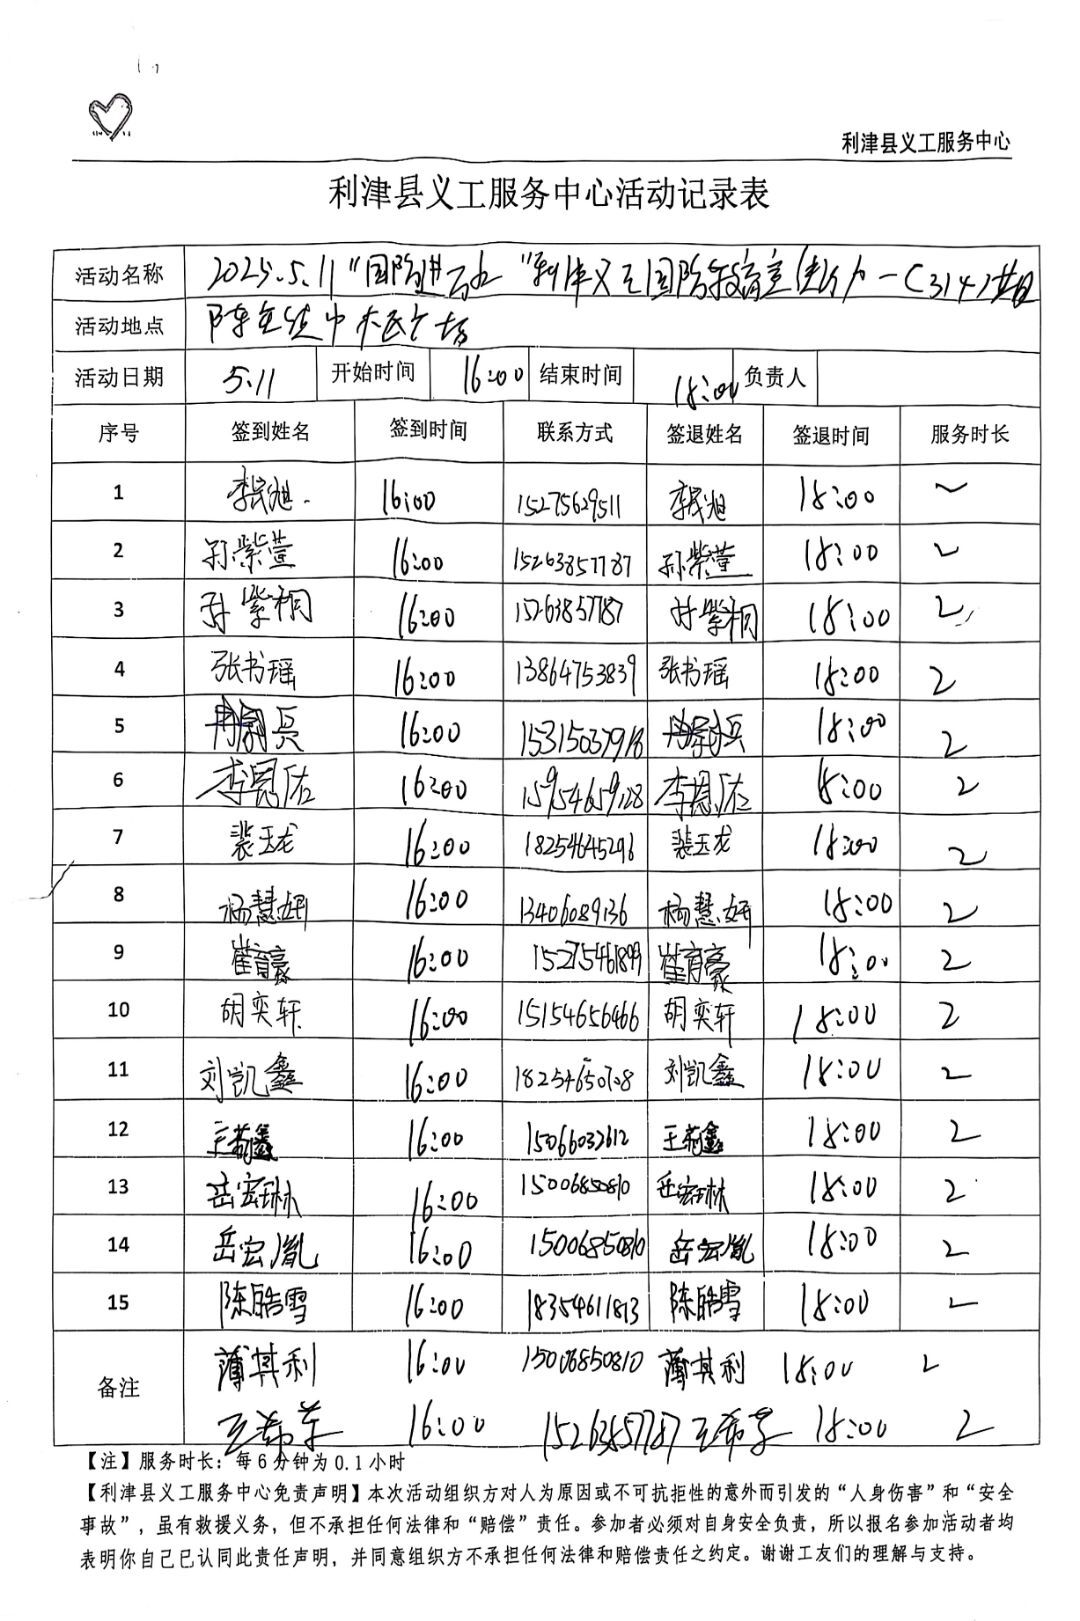 利津县义工服务中心
利津县义工服务中心活动记录表
活动名称 2025.5.11 "国防进 " 利津义工国防教育宣传 一(314)
活动地点 陈庄镇中 广场
活动日期 5.11 开始时间 16:00 结束时间 18:00 负责人
序号 签到姓名 签到时间 联系方式 签退姓名 签退时间 服务时长
1 李民旭 16:00 15275629511 李民旭 18:00 2
2 孙紫萱 16:00 15263857787 孙紫萱 18:00 2
3 孙紫桐 16:00 15263857787 孙紫桐 18:00 2
4 张书瑶 16:00 13864753839 张书瑶 18:00 2
5 兵 16:00 15315037918 兵 18:00 2
6 李恩佑 16:00 15954659128 李恩佑 18:00 2
7 裴玉龙 16:00 18254645296 裴玉龙 18:00 2
8 杨慧妍 16:00 13406089136 杨慧妍 18:00 2
9 崔育豪 16:00 15275461899 崔育豪 18:00 2
10 胡奕轩 16:00 15154656466 胡奕轩 18:00 2
11 刘凯鑫 16:00 18254650708 刘凯鑫 18:00 2
12 王莉鑫 16:00 15066032612 王莉鑫 18:00 2
13 岳宏琳 16:00 15006850810 岳宏琳 18:00 2
14 岳宏胤 16:00 15006850810 岳宏胤 18:00 2
15 陈皓雪 16:00 18354611813 陈皓雪 18:00 2
备注 薄其利 16:00 15006850810 薄其利 18:00 2
王希苹 16:00 15263857787 王希苹 18:00 2
【注】服务时长：每6分钟为0.1小时
【利津县义工服务中心免责声明】本次活动组织方对人为原因或不可抗拒性的意外而引发的“人身伤害”和“安全
事故”，虽有救援义务，但不承担任何法律和“赔偿”责任。参加者必须对自身安全负责，所以报名参加活动者均
表明你自己已认同此责任声明，并同意组织方不承担任何法律和赔偿责任之约定。谢谢工友们的理解与支持。